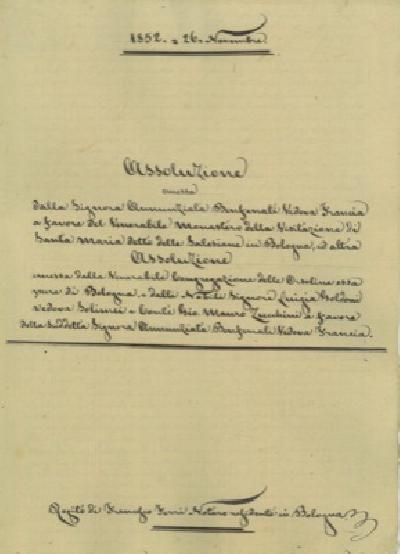 1852. a 26. Novembre
Assoluzione
emessa
dalla Signora Annunziata Benfenati Vedova Francia
a favore del Venerabile Monastero della Visitazione di
Santa Maria detto delle Salesiane in Bologna, ed altra
Assoluzione
emessa dalla Venerabile Congregazione delle Orsoline essa
pure di Bologna, e dalle Nobile Signore Luigia
vedova e Conte Gio. Mauro Zucchini a favore
della suddetta Signora Annunziata Benfenati Vedova Francia.
Rogito di Notaro residente in Bologna